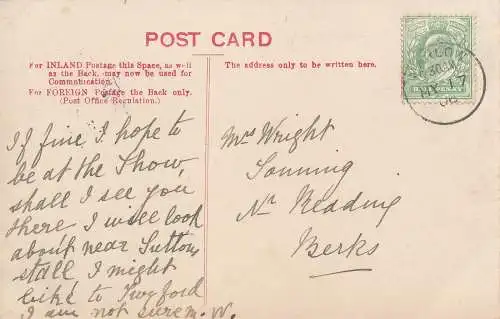 POST CARD
For INLAND Postage this Space, as well
as the Back, may now be used for
Communication.
For FOREIGN Postage the Back only.
(Post Office Regulation.)
The address only to be written here.
HALFPENNY
17
If fine I hope to
be at the Show,
shall I see you
there I will look
about near Suttons
stall I might
bike to Twyford
I am not sure M.W.
Mrs Wright
Sonning
Nr Reading
Berks